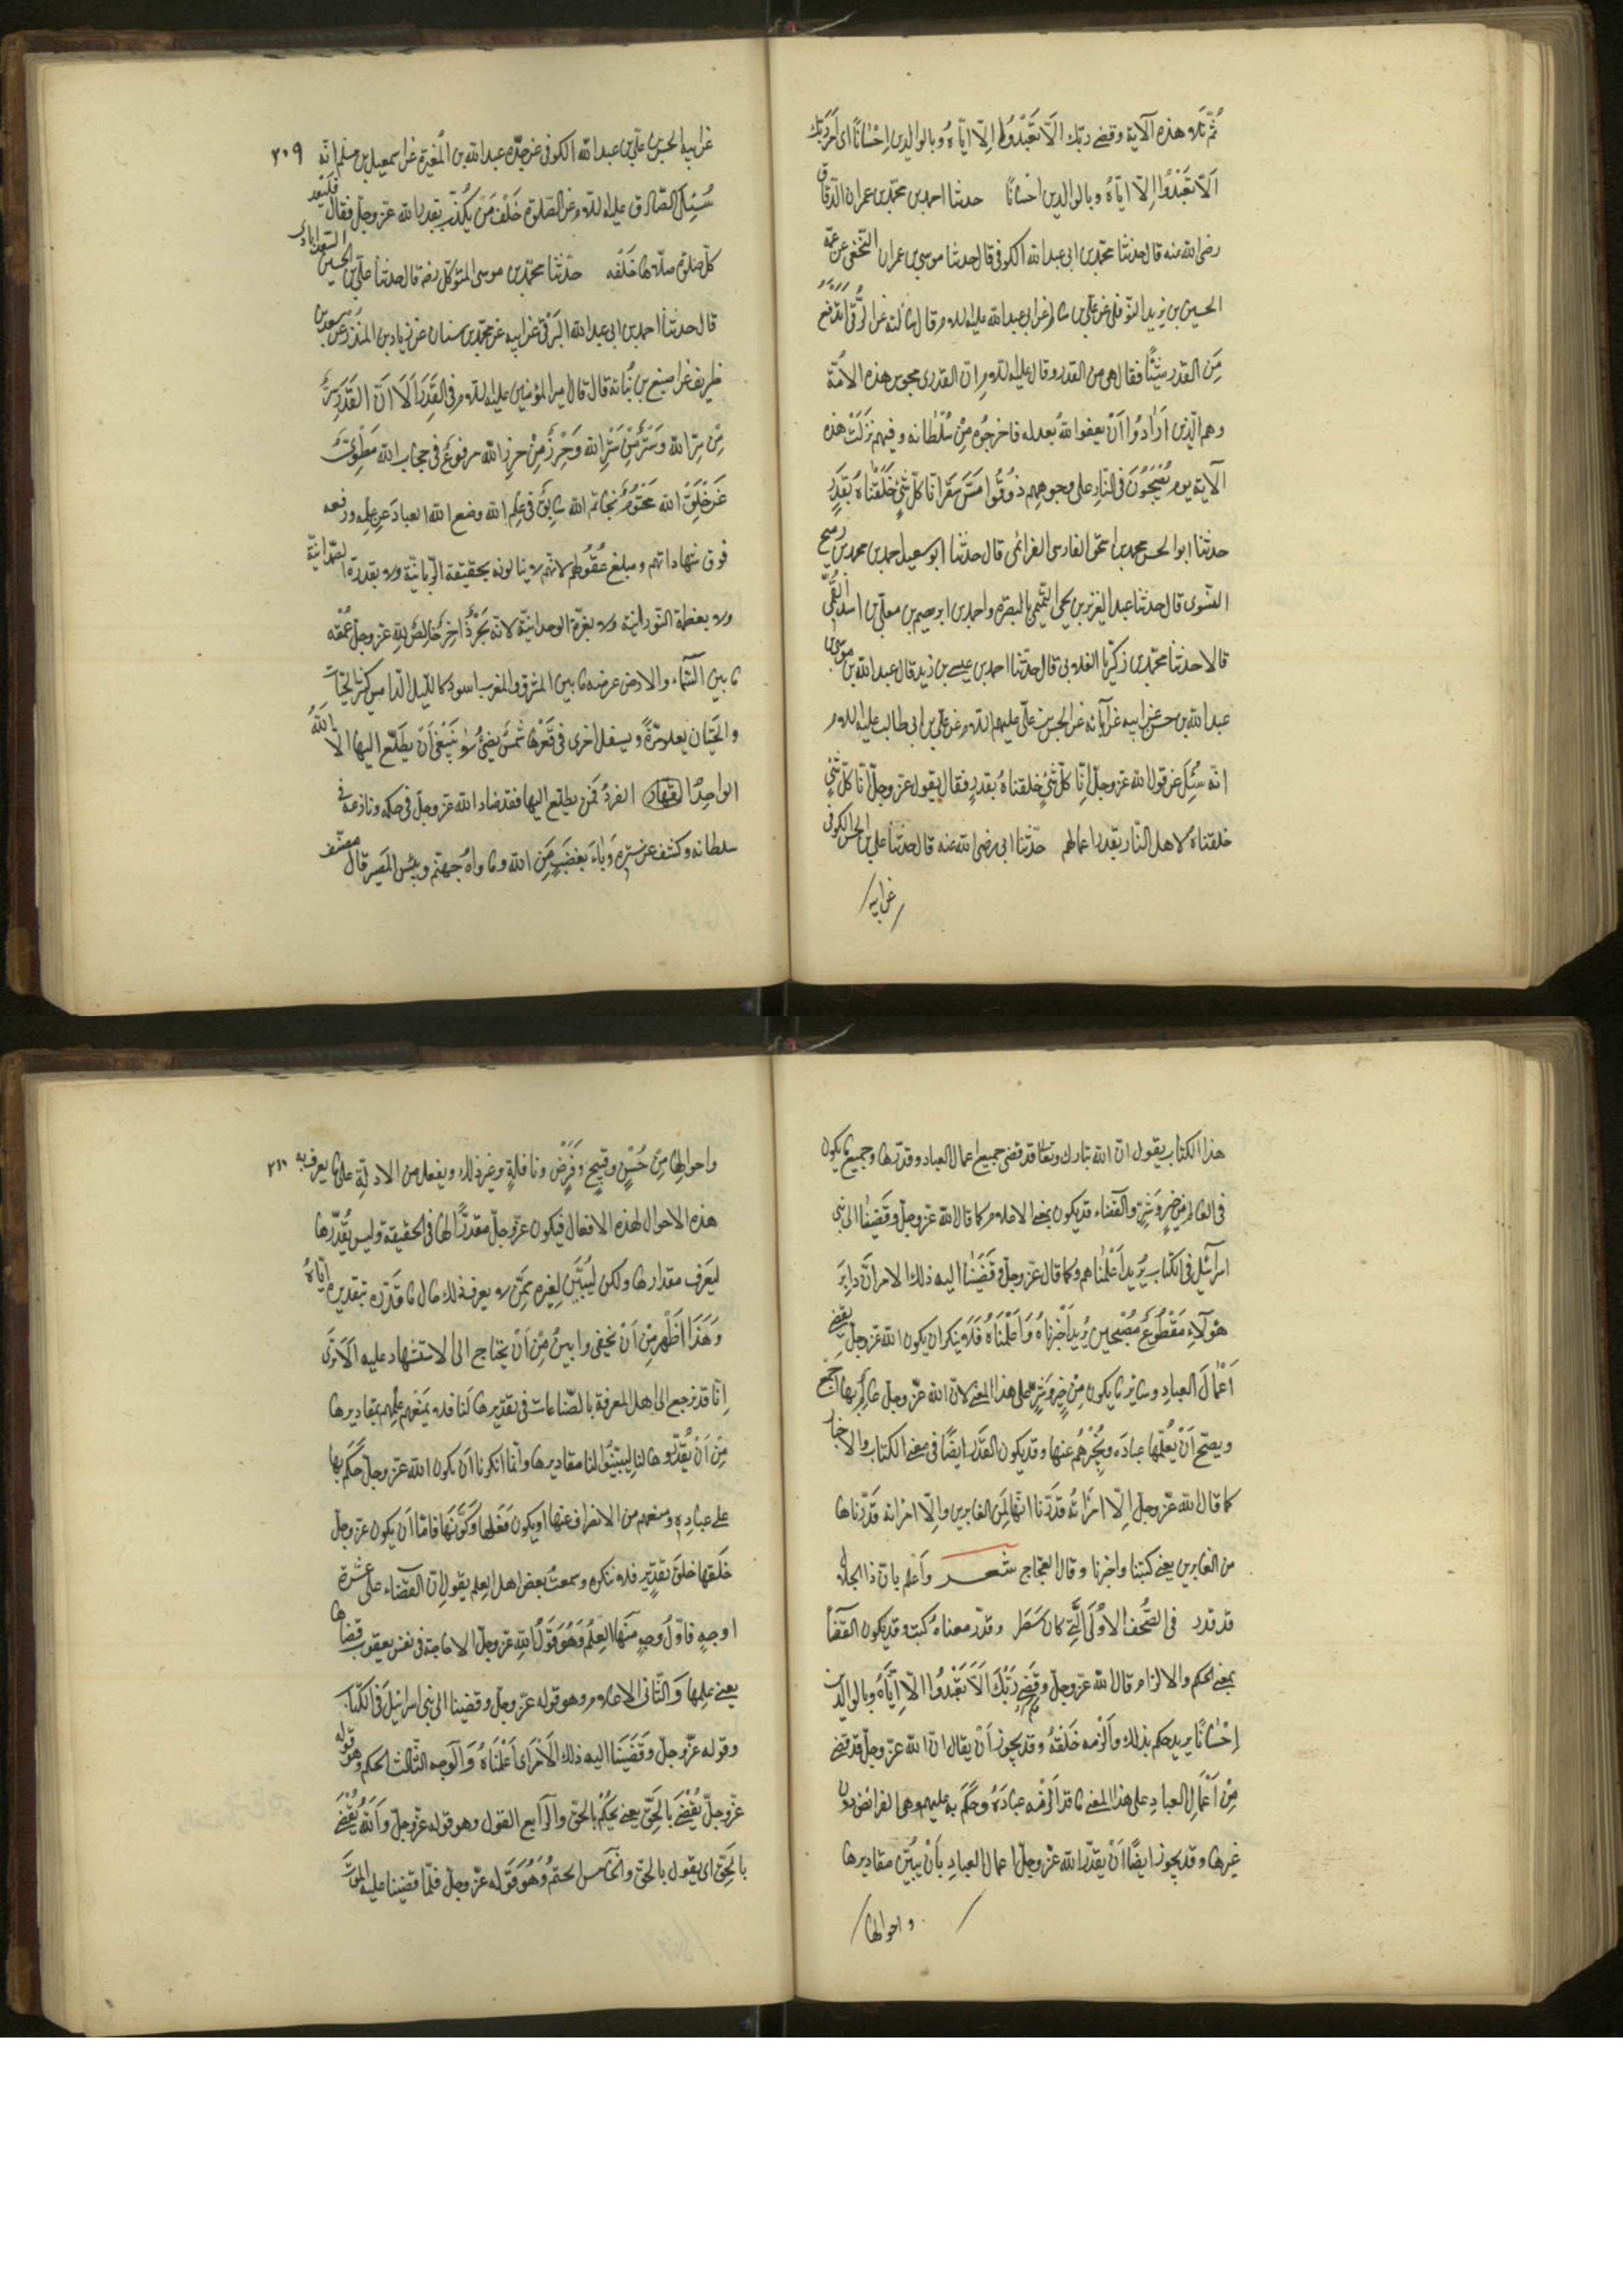 ثُمّ تلا هذه الآية وقضى ربك الّا تَعْبُدُوا اِلّا ايّاهُ وبالوالدين اِحْسَانًا اى اَمَرَ ربّك
اَلّا تَعْبُدُوا اِلّا ايّاهُ وبالوالدين احسانًا حدثنا احمد بن محمّد بن عمران الدّقاق
رضى الله عنه قال حدثنا محمّد بن ابى عبد الله الكوفى قال حدثنا موسى بن عمران النّخعى عن عمّه
الحسين بن يزيد النّوفلى عن علىّ بن سالم عن ابى عبد الله عليه السلام قال سالته عن الرُّقى اَتَدفع
مِنَ القدر شيئًا فقال هى من القدر وقال عليه السلام انّ القدرية مجوس هذه الامّة
وهم الّذين اَرَادُوا اَنْ يصفوا اللهَ بعدله فاخرجُوه مِنْ سُلْطانه وفيهم نزلت هذه
الآية يوم يُسْحَبُونَ فى النّار على وجوههم ذُوقُوا مَسَّ سَقَر انّا كلّ شئٍ خَلَقْناهُ بقَدَرٍ
حدثنا ابو الحسن محمد بن ابراهيم بن اسحق الفارسى العزائمى قال حدّثنا ابو سعيد احمد بن محمد بن رميح
النسَوى قال حدثنا عبد العزيز بن يحيى التّميمى بالبصرة واحمد بن ابرهيم بن معلّى بن اسد العَمّى
قالا حدثنا محمّد بن زكريا الغلابى قال حدّثنا احمد بن عيسى بن زيد قال عبد الله بن موسى بن
عبد الله بن حسن عن ابيه عن آبائه عن الحسن بن علىّ عليهم السلام عن علىّ بن ابى طالب عليه السلام
انّه سُئِلَ عن قول الله عزّ وجلّ اِنّا كلّ شئٍ خلقناهُ بقدرٍ فقال يقول عزّ وجلّ انّا كلّ شئٍ
خلقناهُ لاهل النّار بقدر اعمالهم حدّثنا ابى رضى الله عنه قال حدثنا علىّ بن الحسن الكوفى
عن ابيه
عن ابيه الحسن بن علىّ بن عبد الله الكوفى عن جدّه عبد الله بن المُغيرة عن اسمعيل بن مسلم انّه ٢٠٩
سُئِلَ الصّادق عليه السلام عن الصّلوة خَلْفَ مَنْ يُكذّب بقدر الله عزّ وجلّ فقال فليُعد
كلّ صلوة صلّاها خَلْفَه حدّثنا محمّد بن موسى المتوكّل رضه قال حدثنا علىّ بن الحسين السعدابادى
قال حدثنا احمد بن ابى عبد الله البَرْقى عن ابيه عن محمّد بن سنان عن زياد بن المنذر عن سعد بن
ظريف عن اصبغ بن نُباتة قال قال امير المؤمنين عليه السلام فى القَدَر اَلَا اَنّ القَدَر سِرٌّ
مِنْ سِرّ الله وَسَتْرٌ مِنْ سَتْرِ الله وَحِرْزٌ مِنْ حرزِ الله مرفوعٌ فى حجاب الله مَطْوِىٌّ
عَنْ خَلْقِ الله مَخْتومٌ بخاتم الله سَابِقٌ فى عِلْمِ الله وضع الله العبادَ عن عِلمه ورفعه
فوق شهاداتهم ومبلغ عُقُولهم لانّهم لا ينالونه بحقيقة الرّبّانيّة ولا بقدرة الصّمدانيّة
ولا بعظمة النّورانية ولا بعزّة الوحدانيّة لانّه بَحْرٌ زاخِرٌ خَالِصٌ لِلّهِ عزّ وجلّ عُمْقه
ما بين السّماء والارض عرضه ما بين المشرق والمغرب اسود كالليل الدّامس كثير الحيّات
والحيتان يعلو مَرّةً ويسفل اخرى فى قَعْرها شَمْسٌ تضئ لا يَنْبَغى اَنْ يَطّلع اليها الّا الله
الواحِدُ القهّار الفرد فمَن يطّلع اليها فقد ضادّ الله عزّ وجلّ فى حكمه ونازعه فى
سلطانه وكشف عن ستره وَباءَ بغضبٍ مِنَ الله وماواهُ جهنّم وبِئسَ المَصير قال مصنّف
هذا الكتاب يقول انّ الله تبارك وتعالى قد قضى جميع اعمال العباد وقدّرها وجميع ما يكون
فى العالم مِن خيرٍ وَشرٍّ والقضاء قد يكون بمعنى الاعلام كما قال الله عزّ وجلّ وقَضَيْنا الى بَنى
اسرآئيل فى الكتاب يُريد اَعْلَمناهم وكما قال عزّ وجلّ وقَضَيْنا اليه ذلك الامر انّ دابِرَ
هؤلاءِ مَقْطُوعٌ مُصْبِحين يُريد اَخْبَرْناهُ وَاَعْلَمْنَاهُ فَلا ينكر ان يكون الله عزّ وجلّ يقضى
اَعْمَالَ العبادِ وساير ما يكون مِنْ خيرٍ وَشَرٍّ على هذا المعنى لانّ الله عزّ وجلّ عالِمٌ بها اجمع
ويصحّ اَنْ يُعلّمها عبادَه ويُخبرهُم عنها وقد يكون القدَر ايضًا فى معنى الكتاب والاخبار
كما قال الله عزّ وجلّ اِلّا امْرَاتَهُ قدّرنا انّها لَمِنَ الغابرين واِلّا امْرَاتَه قَدّرناها
من الغابرين يعنى كتبنا واخبرنا وقال العجّاج شعر وَاعْلم بانّ ذا الجلال
قد قدر فى الصُّحف الاُوْلَى الّتى كان سَطَر وقدّر معناهُ كتب وقد يكون القَضَآء
بمعنى الحكم والالزام قال الله عزّ وجلّ وقَضى رَبُّكَ اَلّا تَعْبُدُوا اِلّا اِيّاهُ وبالوالدَين
اِحْسَانًا يريد حكم بذلك وَاَلْزمه خَلْقَهُ وقد يجوز اَنْ يقال انّ الله عزّ وجلّ قد قضى
مِنْ اَعْمَالِ العبادِ على هذا المعنى ما قد اَلزَمَه عبادَهُ وحَكَمَ به عليهم وهى الفرائض دون
غيرها وقد يجوز ايضًا اَنْ يقدّر الله عزّ وجلّ اعمال العبادِ باَنْ يُبيّن مقاديرها
واحوالها
واحوالها مِنْ حُسْنٍ وقبيحٍ وَفَرْضٍ ونافلةٍ وغير ذلك ويفعل من الادلّةِ على ما يعرف به ٢١٠
هذه الاحوال لهذه الافعال فيكون عزّ وجلّ مقدّرًا لها فى الحقيقة وليس يُقَدّرها
ليَعرف مقدارها ولكن ليُبَيّن لغيره مِمّن لا يعرف ذلك حال ما قَدّره بتقديره ايّاهُ
وَهَذَا اَظْهر مِنْ اَنْ يخفى وابينُ مِنْ اَنْ يحتاج الى الاستشهاد عليه اَلَا تَرَى
اِنّا قد نرجع الى اهل المعرفة بالصّناعات فى تقديرها لَنا فلا يَمنَعهم عِلْمهم بمقاديرها
مِنْ اَنْ يُقدّروها لنا ليُبيّنُوا لنا مقاديرها وانّما انكرنا اَن يكون الله عزّ وجلّ حَكَم بها
على عبادِهِ ومنعهم من الانصراف عنها او يكون فَعَلها وَكَوَّنَها فَامّا اَن يكون عزّ وجلّ
خَلَقها خلقَ تقديرٍ فلا ننكره وسمعتُ بعض اهل العِلم يقول اِنّ القَضاء على عشرة
اوجهٍ فاوّلُ وجهٍ منها العِلْمُ وَهُوَ قَوْلُ اللهِ عزّ وجلّ الّا حاجة فى نفس يعقوب قضاها
يعنى علِمها وَالثّانى الاعلام وهو قوله عزّ وجلّ وقضينا الى بنى اسرائيل فى الكتاب
وقوله عزّ وجلّ وقَضَيْنا اليه ذلك الاَمْرَ اى اَعْلمنَاهُ وَالْوَجه الثّالث الحكم وهو قوله
عزّ وجلّ يَقْضى بالحقّ يعنى يَحْكمُ بالحقّ والرّابع القول وهو قوله عزّ وجلّ وَاللهُ يَقْضى
بالحقّ اى يقول بالحقّ والخامس الحتمُ وهُوَ قَوْله عزّ وجلّ فلمّا قضينا عليه المَوتَ